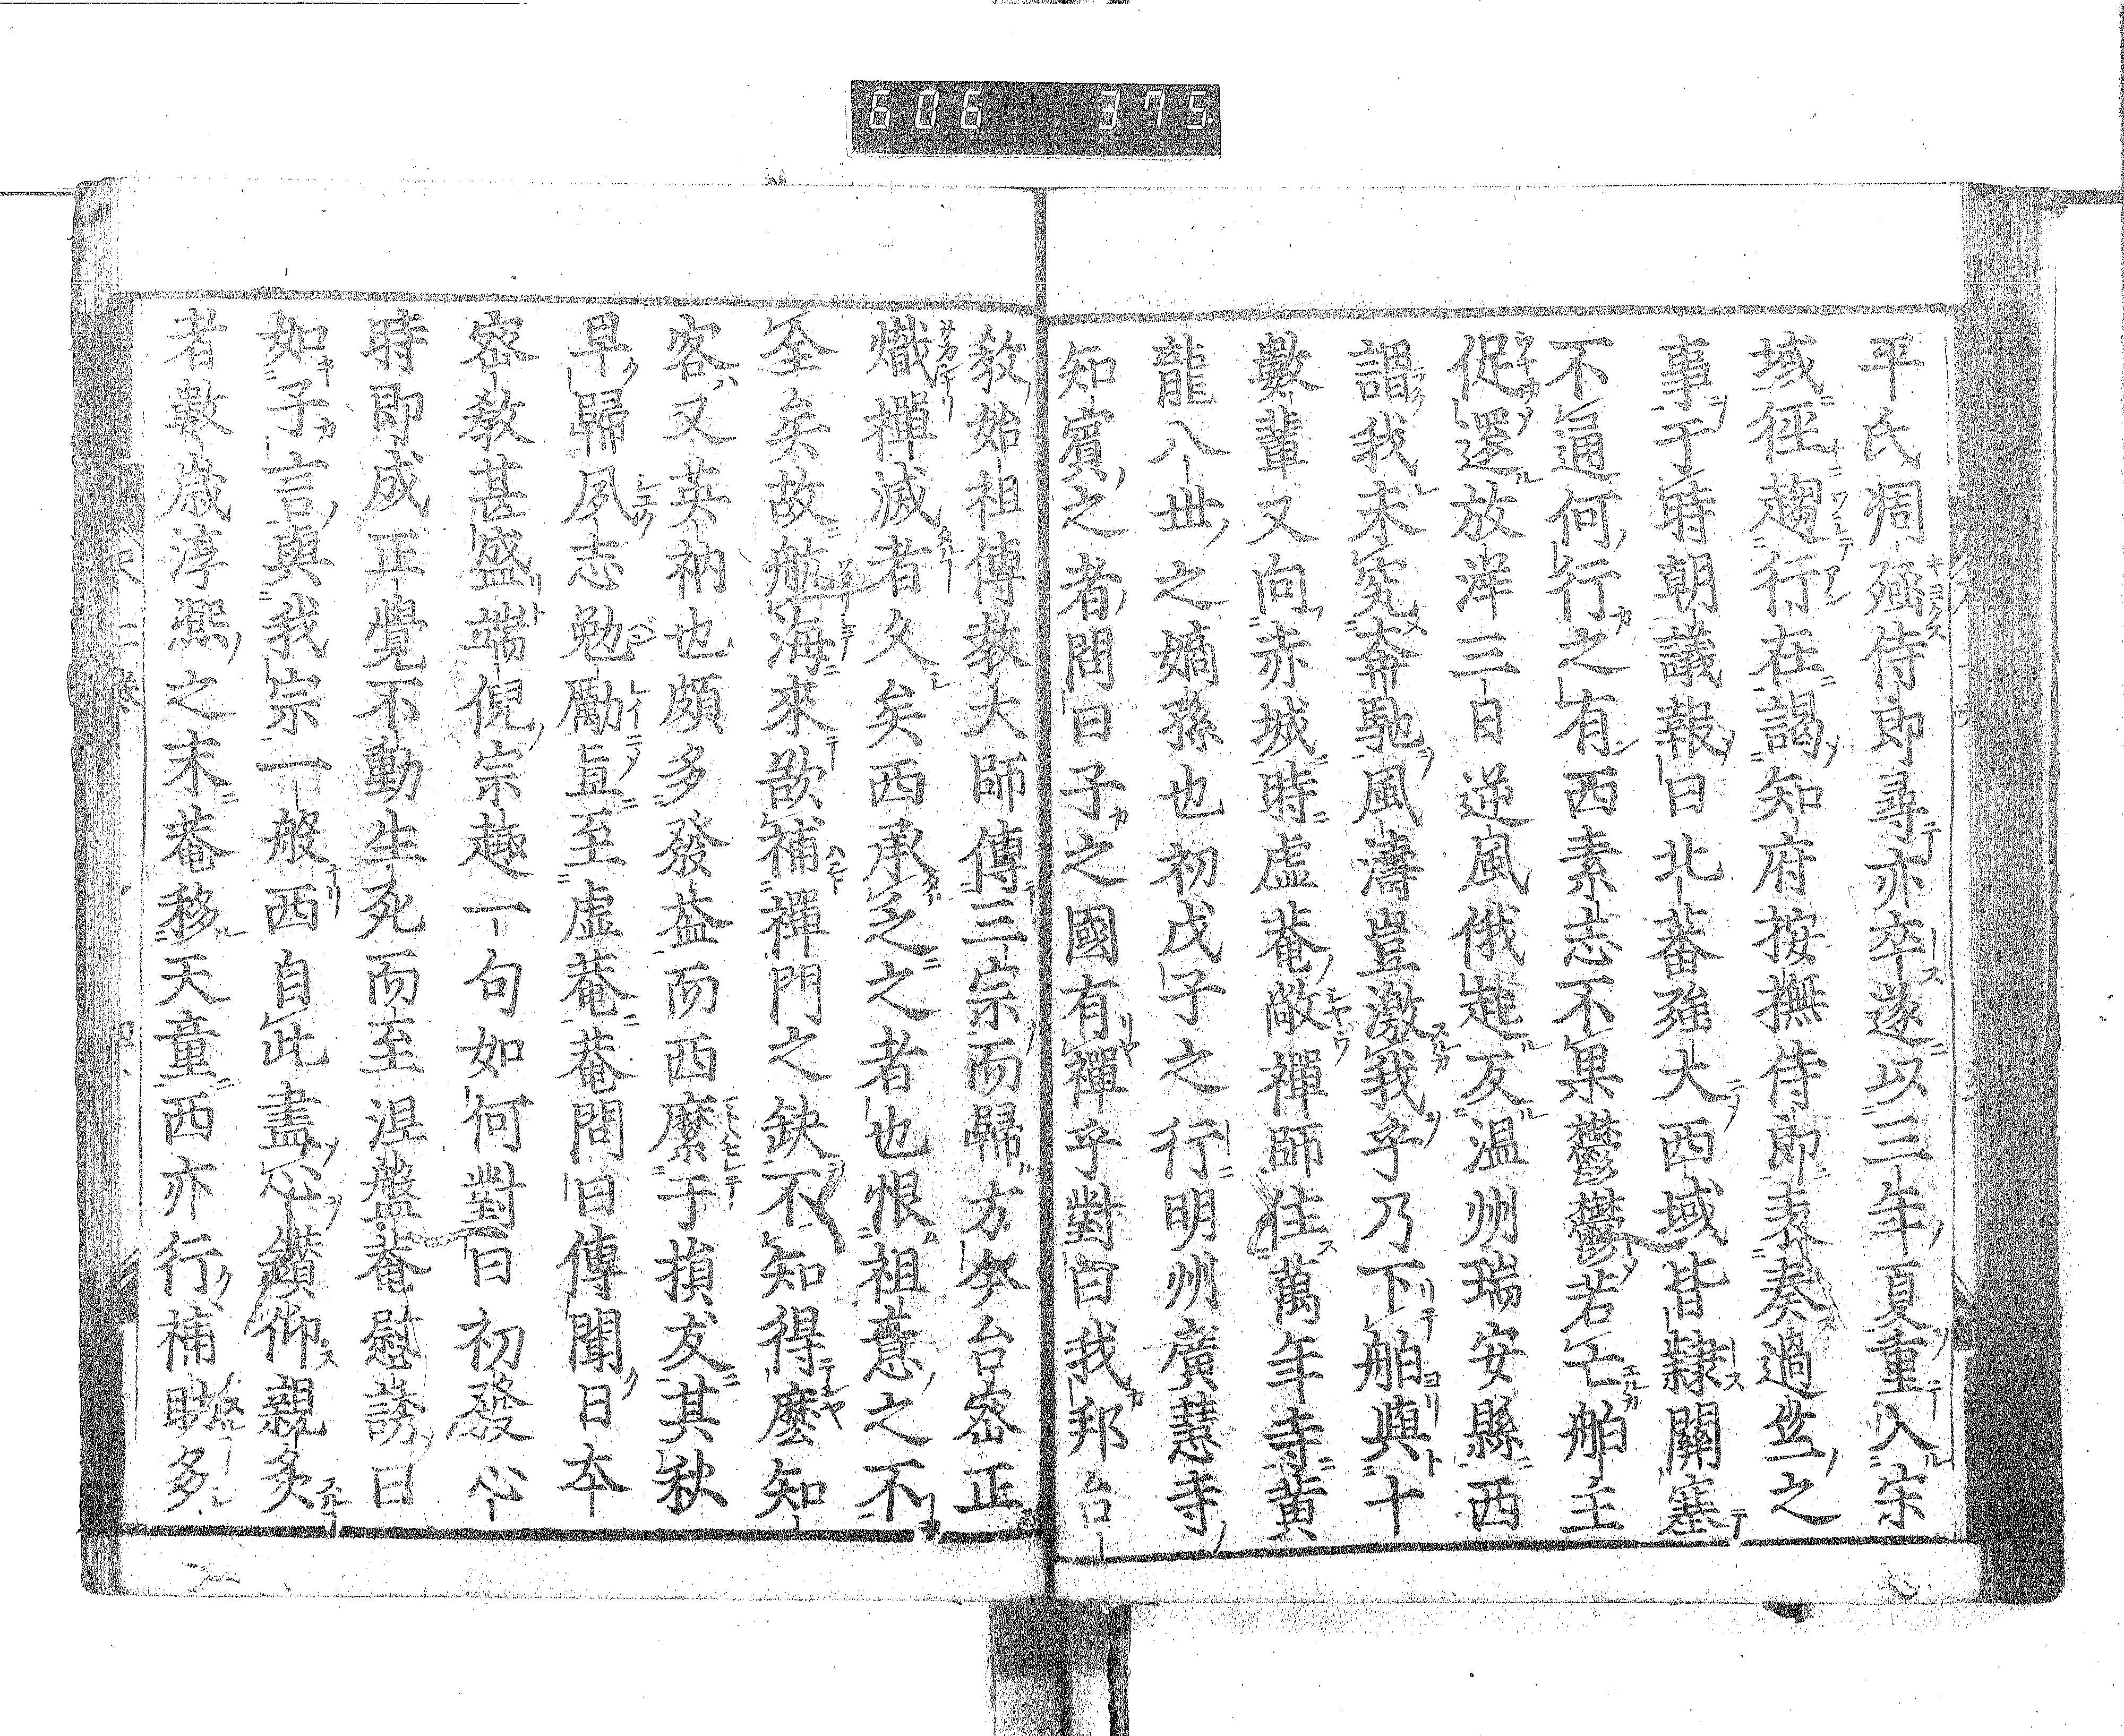 606 375
平氏凋殛侍郎尋亦卒遂以三年夏重入宋
域徑趨行在謁知府按撫侍郎表奏過竺之
事于時朝議報曰北蕃強大西域皆隷關塞
不通何行之有西素志不果鬱鬱若亡舶主
促還放洋三日逆風俄起反温州瑞安縣西
謂我未究奔馳風濤豈激我乎乃下舶與十
數輩又向赤城時虚菴敞禪師住萬年寺黃
龍八世之嫡孫也初戊子之行明州廣慧寺
知賓之者問曰子之國有禪乎對曰我邦台
教始祖傳教大師傳三宗而歸方今台密正
熾禪滅者久矣西承乏之者也恨祖意之不
全矣故航海來欲補禪門之缺不知得麼知
客又英衲也頗多發益而西縻于損友其秋
早歸夙志勉勵直至虚菴菴問曰傳聞日本
密教甚盛端倪宗趣一句如何對曰初發心
時即成正覺不動生死而至涅盤菴慰誘曰
如子言與我宗一般西自此盡心鑽仰親炙
者數歳淳熙之末菴移天童西亦行補䀹多